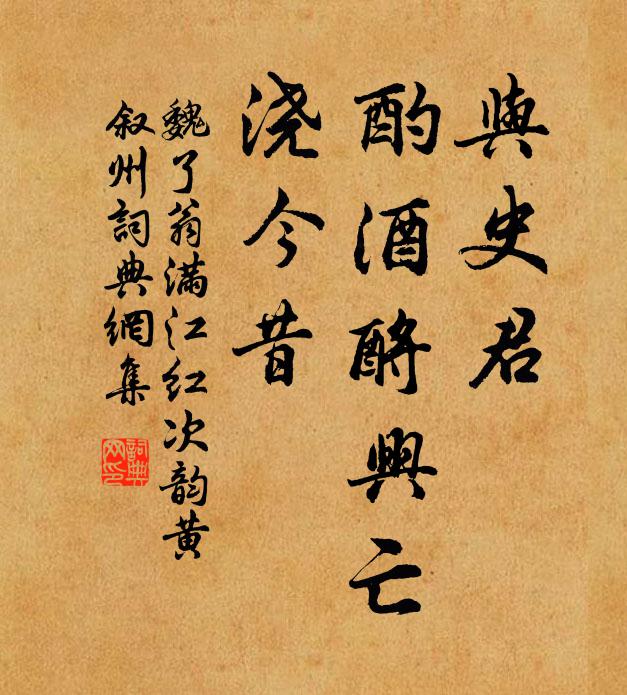 與史君
酌酒酹興亡
浇今昔
魏了翁满江红次韵黄
叙州詞典網集
詞典网印